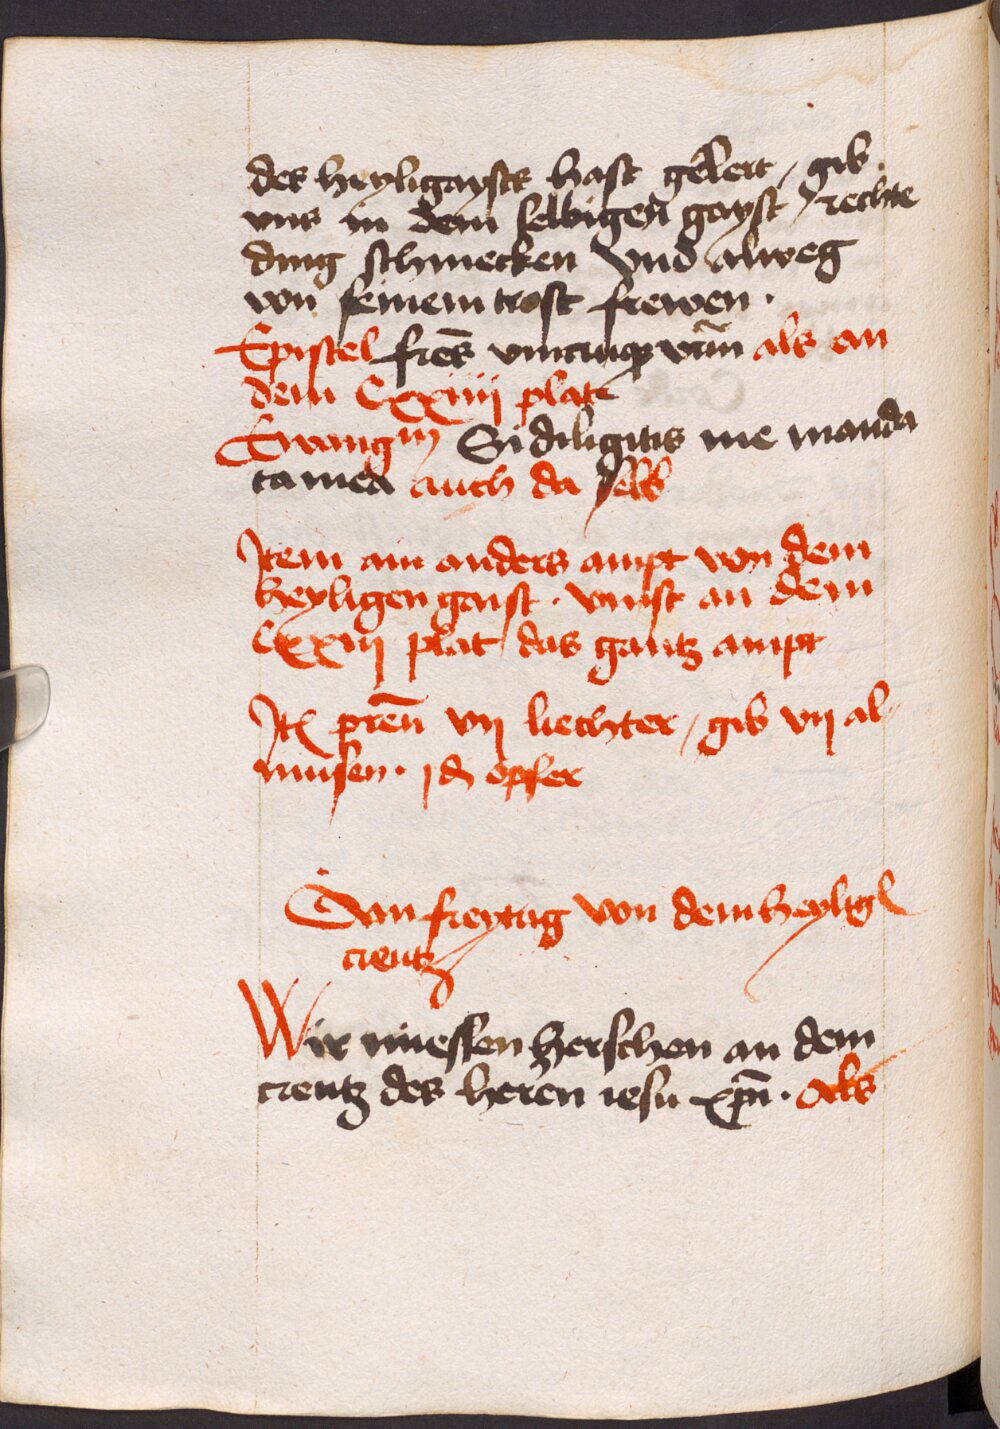 des heyligaysts hast gelert / gib
vns in dem selbigen gayst / rechte
ding schmecken vnd alweg
von seinem trost frewen .
Epistel fres̄ vnicuiqȝ vr̄m als an
dem Cxxiiij plat
Ewangm Si diligitis me manda
ta mea auch da selb
Item ain anders ampt von dem
heyligen gaist . vinst an dem
Cxxiij plat das gantz ampt
Itē pren̄ vij liechter / gib vij al
musen . j d opfer
Am freytag von dem heylig
creutz
Wir miessen herschen an dem
creutz des heren iesu xpn̄ . Als